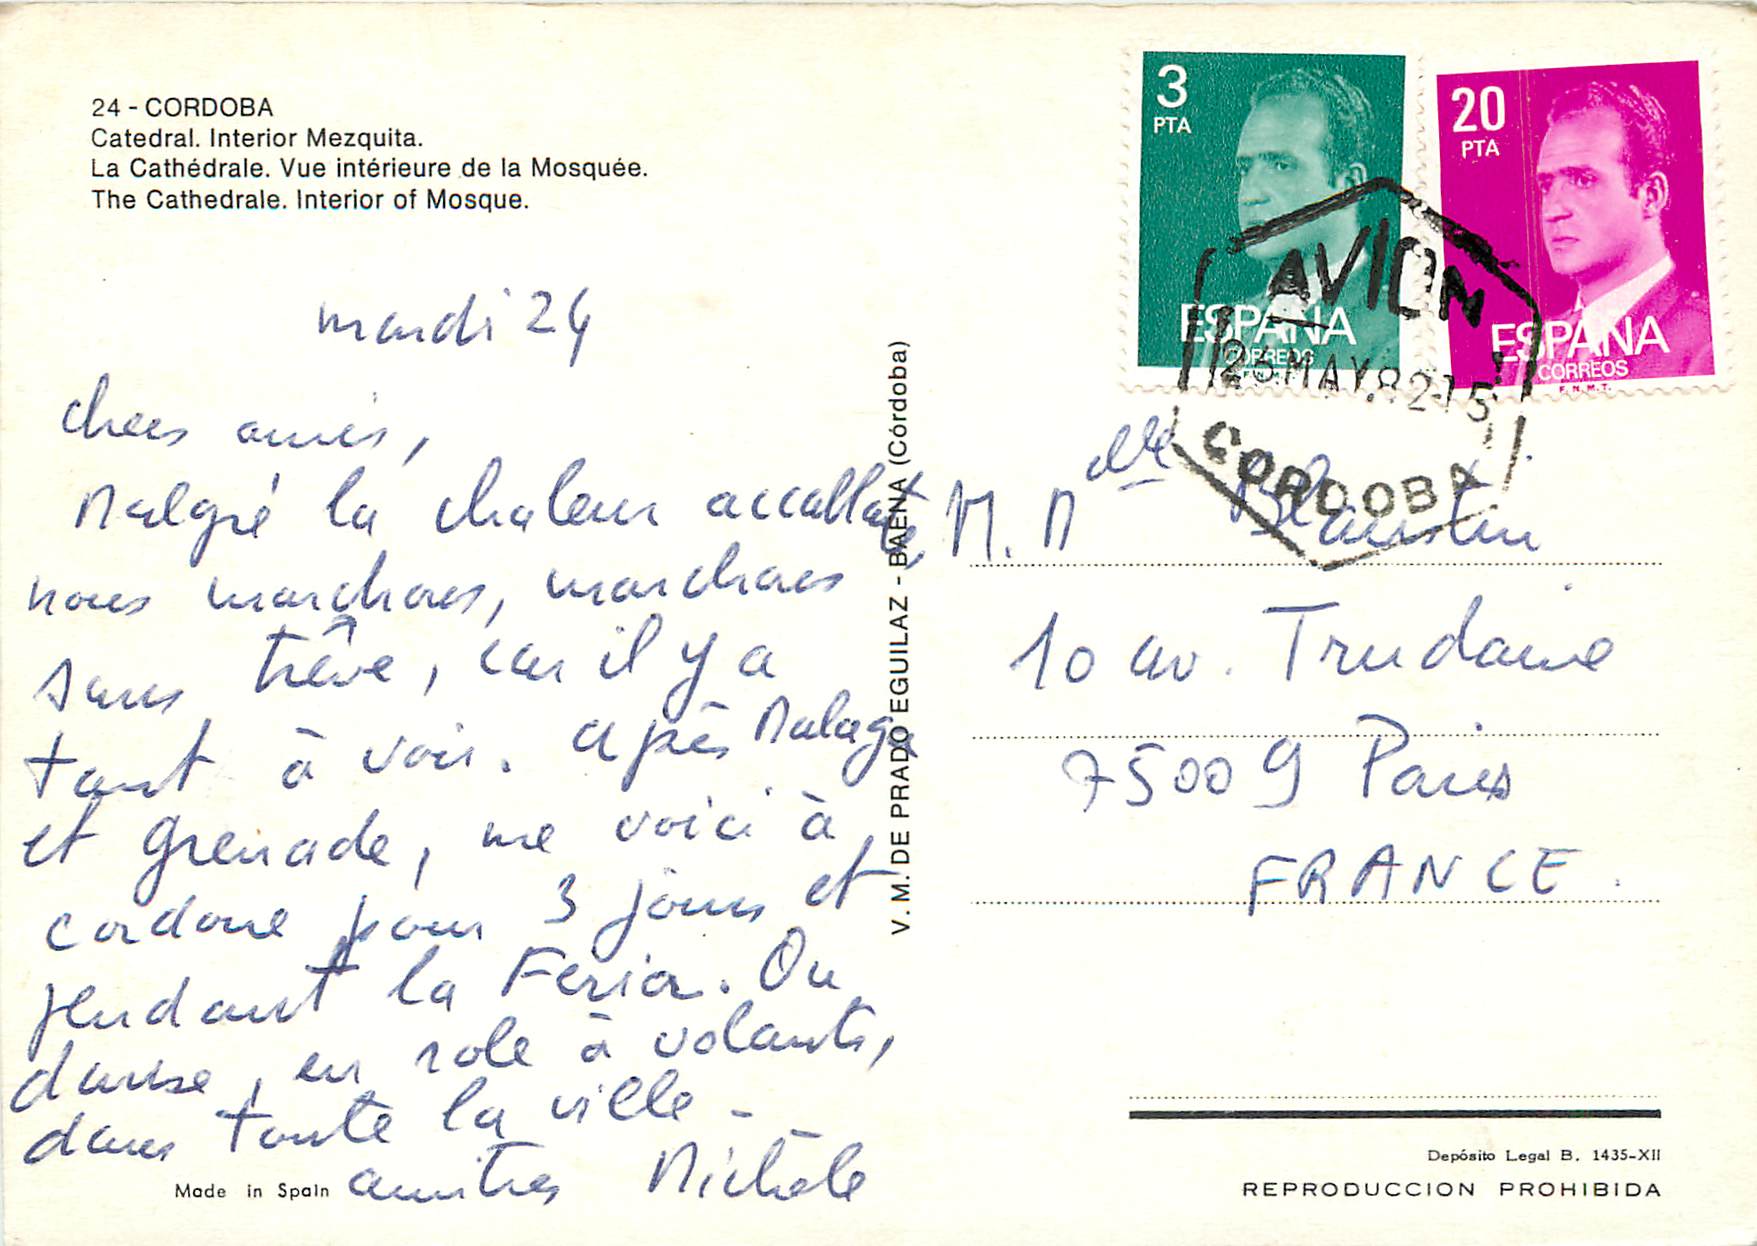 24 - CORDOBA
Catedral. Interior Mezquita.
La Cathédrale. Vue intérieure de la Mosquée.
The Cathedrale. Interior of Mosque.
mardi 24
chers amis,
Malgré la chaleur accablante,
nous marchons, marchons
sans trêve, car il y a
tant à voir. Après Malaga
et Grenade, me voici à
Cordoue pour 3 jours et
pendant la Feria. On
danse, en robe à volants,
dans toute la ville -
amitiés Michèle
Made in Spain
V. M. DE PRADO EGUILAZ - BAENA (Córdoba)
3
PTA
ESPAÑA
CORREOS
F.N.M.T.
20
PTA
ESPAÑA
CORREOS
F.N.M.T.
AVION
MAY.82
CORDOBA
M. Mlle
10 av. Trudaine
75009 Paris
FRANCE.
Depósito Legal B. 1435-XII
REPRODUCCION PROHIBIDA